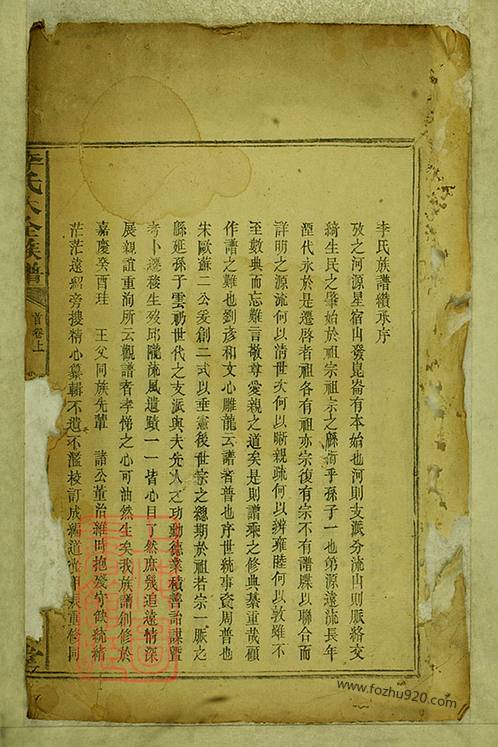 李氏族譜纘承序
攷之河源星宿山發崑崙有本始也河則支派分流山則脈絡交
綺生民之肇始於祖宗祖宗之緜衍乎孫子一也弟源遠流長年
湮代永於是遷居者祖各有祖亦宗復有宗不有譜牒以聯合而
詳明之源流何以清世次何以晰親疏何以辨雍睦何以敦雖不
至數典而忘難言敬尊愛親之道矣是則譜乘之修典綦重哉顧
作譜之難也劉彥和文心雕龍云譜者普也序世統事資周普也
宋歐蘇二公爰創二式以垂憲後世宗之總期於祖若宗一脈之
緜延孫子雲礽世代之支派與夫先人之功勳德業積善詒謀暨
考卜遷移生歿邱隴流風遺蹟一一皆心目了然庶幾追遠情深
展親誼重洵所云觀譜者孝悌之心可油然生矣我族譜創修於
嘉慶癸酉珪 王父同族先輩 諸公董治維時抱愛守欽統緒
茫茫遠紹旁搜精心纂輯不遺不濫校訂成編道光 辰重修同
李氏大全族譜
首卷上
www.fozhu920.com